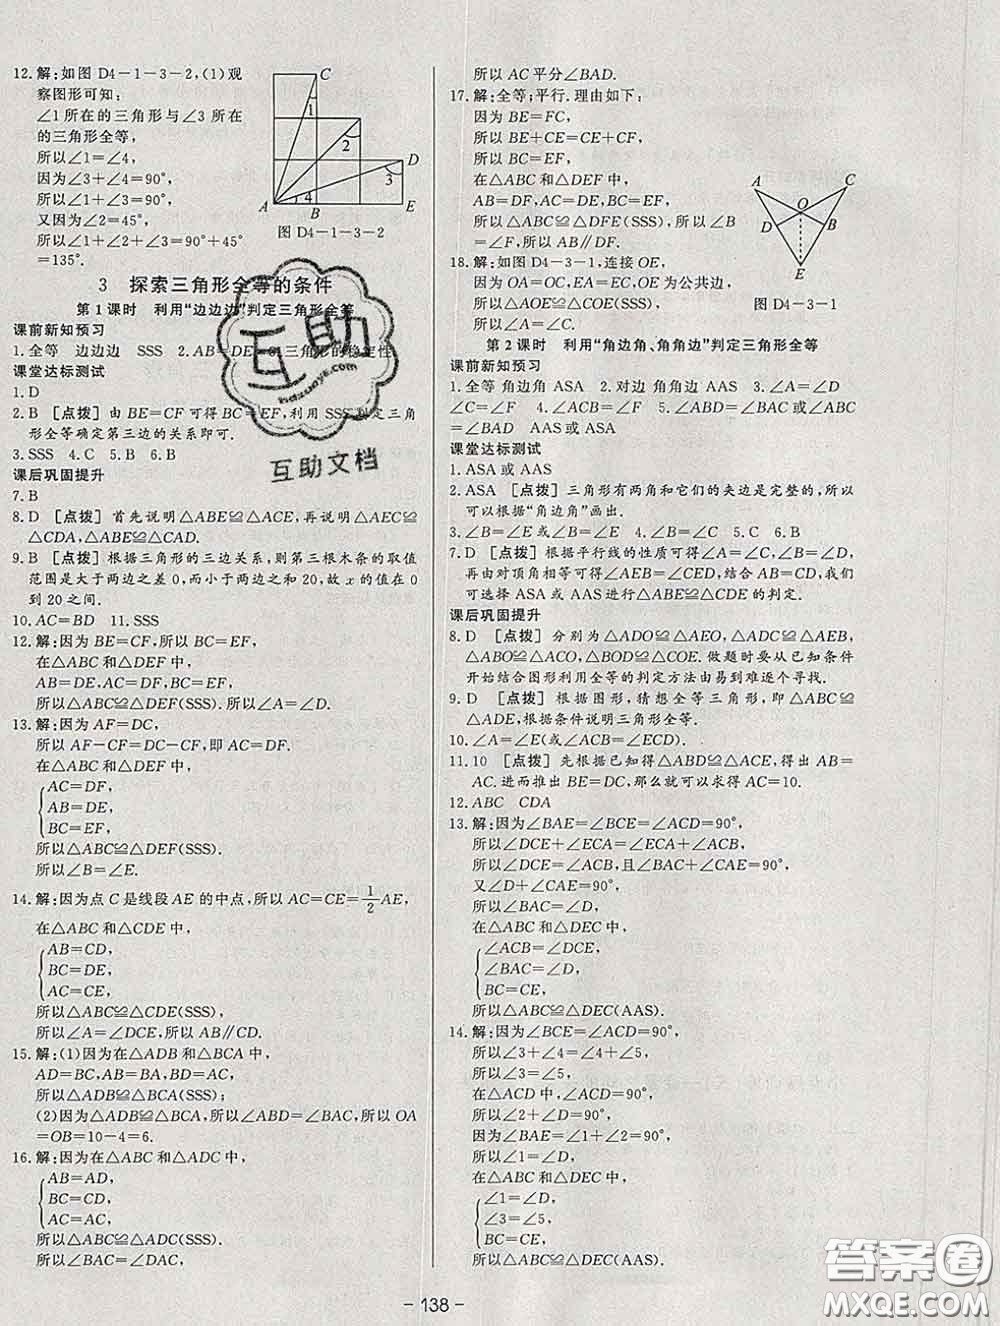 12. 解:如图 D4-1-3-2,(1)观
察图形可知:
∠1所在的三角形与∠3所在
的三角形全等,
所以∠1=∠4,
因为∠3+∠4=90°,
所以∠1+∠3=90°,
又因为∠2=45°,
所以∠1+∠2+∠3=90°+45°
=135°.
C
1
2
D
3
A
4
B
E
图 D4-1-3-2
3 探索三角形全等的条件
第1课时 利用“边边边”判定三角形全等
课前新知预习
1. 全等 边边边 SSS 2. AB=DE 3. 三角形的稳定性
课堂达标测试
1. D
2. B [点拨] 由 BE=CF 可得 BC=EF,利用 SSS 判定三角
形全等确定第三边的关系即可.
3. SSS 4. C 5. B 6. B
课后巩固提升
7. B
8. D [点拨] 首先说明△ABE≌△ACE,再说明△AEC≌
△CDA,△ABE≌△CAD.
9. B [点拨] 根据三角形的三边关系,则第三根木条的取值
范围是大于两边之差0,而小于两边之和20,故 x 的值在0
到20之间.
10. AC=BD 11. SSS
12. 解:因为 BE=CF,所以 BC=EF,
在△ABC和△DEF中,
AB=DE,AC=DF,BC=EF,
所以△ABC≌△DEF(SSS). 所以∠A=∠D.
13. 解:因为 AF=DC,
所以 AF-CF=DC-CF,即 AC=DF.
在△ABC和△DEF中,
AC=DF,
AB=DE,
BC=EF,
所以△ABC≌△DEF(SSS).
所以∠B=∠E.
14. 解:因为点 C 是线段 AE 的中点,所以 AC=CE=1/2AE,
在△ABC和△CDE中,
AB=CD,
BC=DE,
AC=CE,
所以△ABC≌△CDE(SSS).
所以∠A=∠DCE,所以 AB∥CD.
15. 解:(1)因为在△ADB和△BCA中,
AD=BC,AB=BA,DB=CA,
所以△ADB≌△BCA(SSS).
(2)因为△ADB≌△BCA,所以∠ABD=∠BAC,所以 OA
=OB=10-4=6.
16. 解:因为在△ABC和△ADC中,
AB=AD,
BC=CD,
AC=AC,
所以△ABC≌△ADC(SSS).
所以∠BAC=∠DAC,
所以 AC 平分∠BAD.
17. 解:全等;平行. 理由如下:
因为 BE=FC,
所以 BE+CE=CE+CF,
所以 BC=EF,
在△ABC和△DEF中,
AB=DF,AC=DE,BC=EF,
所以△ABC≌△DFE(SSS),所以∠B
=∠F,所以 AB∥DF.
18. 解:如图 D4-3-1,连接 OE,
因为 OA=OC,EA=EC,OE 为公共边,
所以△AOE≌△COE(SSS).
所以∠A=∠C.
A
C
O
D
B
E
图 D4-3-1
第2课时 利用“角边角、角角边”判定三角形全等
课前新知预习
1. 全等 角边角 ASA 2. 对边 角角边 AAS 3. ∠A=∠D
∠C=∠F 4. ∠ACB=∠F 5. ∠ABD=∠BAC或∠ABC
=∠BAD ASA或AAS
课堂达标测试
1. ASA或AAS
2. ASA [点拨] 三角形有两角和它们的夹边是完整的,所以
可以根据“角边角”画出.
3. ∠B=∠E或∠B=∠E 4. ∠B=∠C 5. C 6. B
7. D [点拨] 根据平行线的性质可得∠A=∠C,∠B=∠D,
再由对顶角相等可得∠AEB=∠CED,结合 AB=CD,我们
可选择 ASA或AAS进行△ABE≌△CDE的判定.
课后巩固提升
8. D [点拨] 分别为△ADO≌△AEO,△ADC≌△AEB,
△ABO≌△ACO,△BOD≌△COE. 做题时要从已知条件
开始结合图形利用全等的判定方法由易到难逐个寻找.
9. D [点拨] 根据图形,猜想全等三角形,即△ABC≌
△ADE,根据条件说明三角形全等.
10. ∠A=∠E(或∠ABC=∠ECD).
11. 10 [点拨] 先根据已知得△ABD≌△ACE,得出 AB=
AC. 进而推出 BE=DC,那么就可以求得 AC=10.
12. ABC CDA
13. 解:因为∠BAE=∠BCE=∠ACD=90°,
所以∠DCE+∠ECA=∠ECA+∠ACB,
所以∠DCE=∠ACB,且∠BAC+∠CAE=90°.
又∠D+∠CAE=90°,
所以∠BAC=∠D,
在△ABC和△DEC中,
∠ACB=∠DCE,
∠BAC=∠D,
BC=EC,
所以△ABC≌△DEC(AAS).
14. 解:因为∠BCE=∠ACD=90°,
所以∠3+∠4=∠4+∠5,
所以∠3=∠5,
在△ACD中,∠ACD=90°,
所以∠2+∠D=90°,
因为∠BAE=∠1+∠2=90°,
所以∠1=∠D,
在△ABC和△DEC中,
∠1=∠D,
∠3=∠5,
BC=CE,
所以△ABC≌△DEC(AAS).
互助
互助文档
- 138 -
答案圈
MXQE.COM